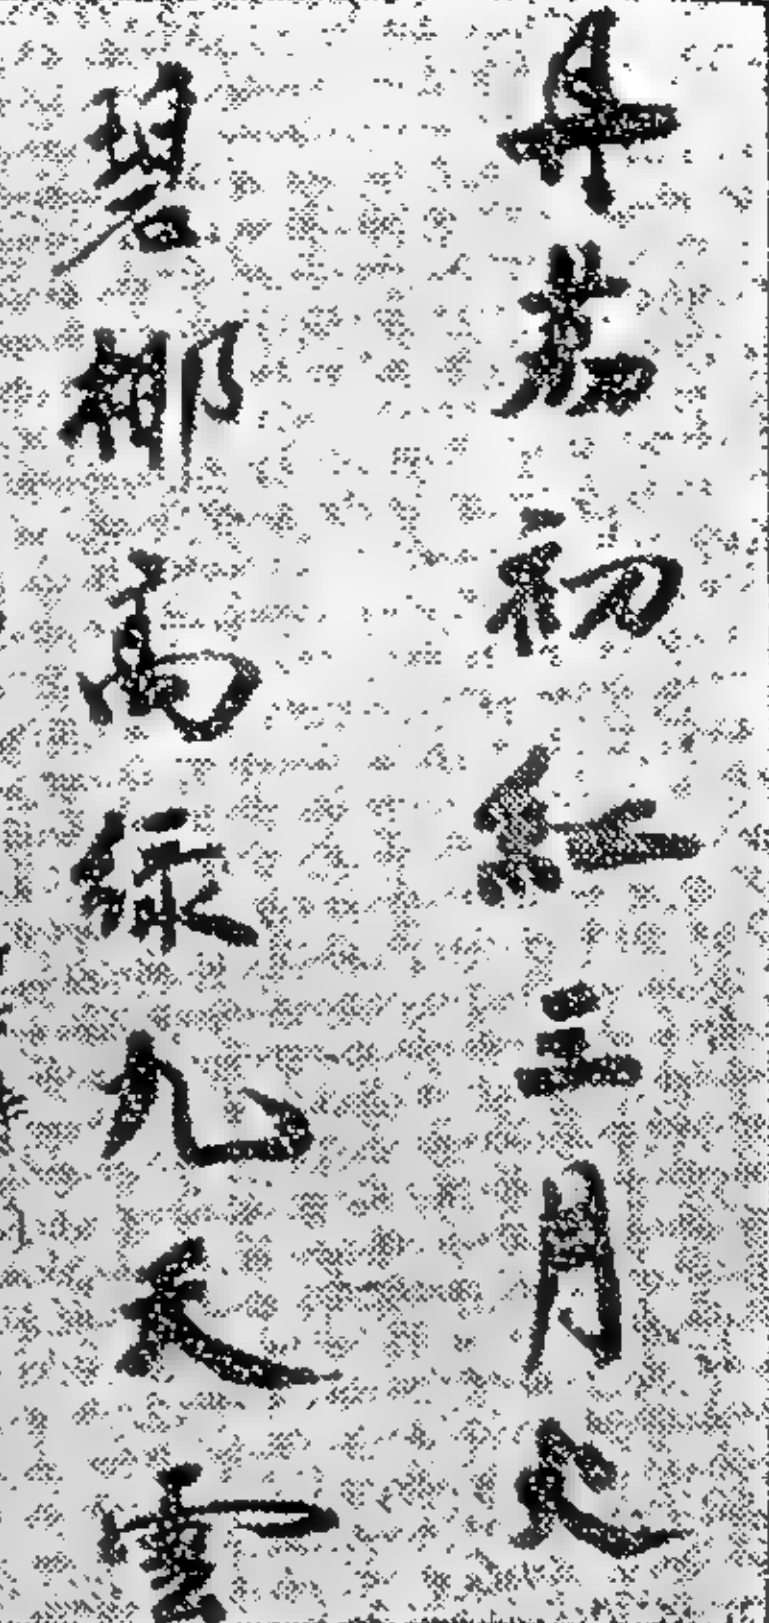 丹荔初紅三月火
碧椰高綠九天雲